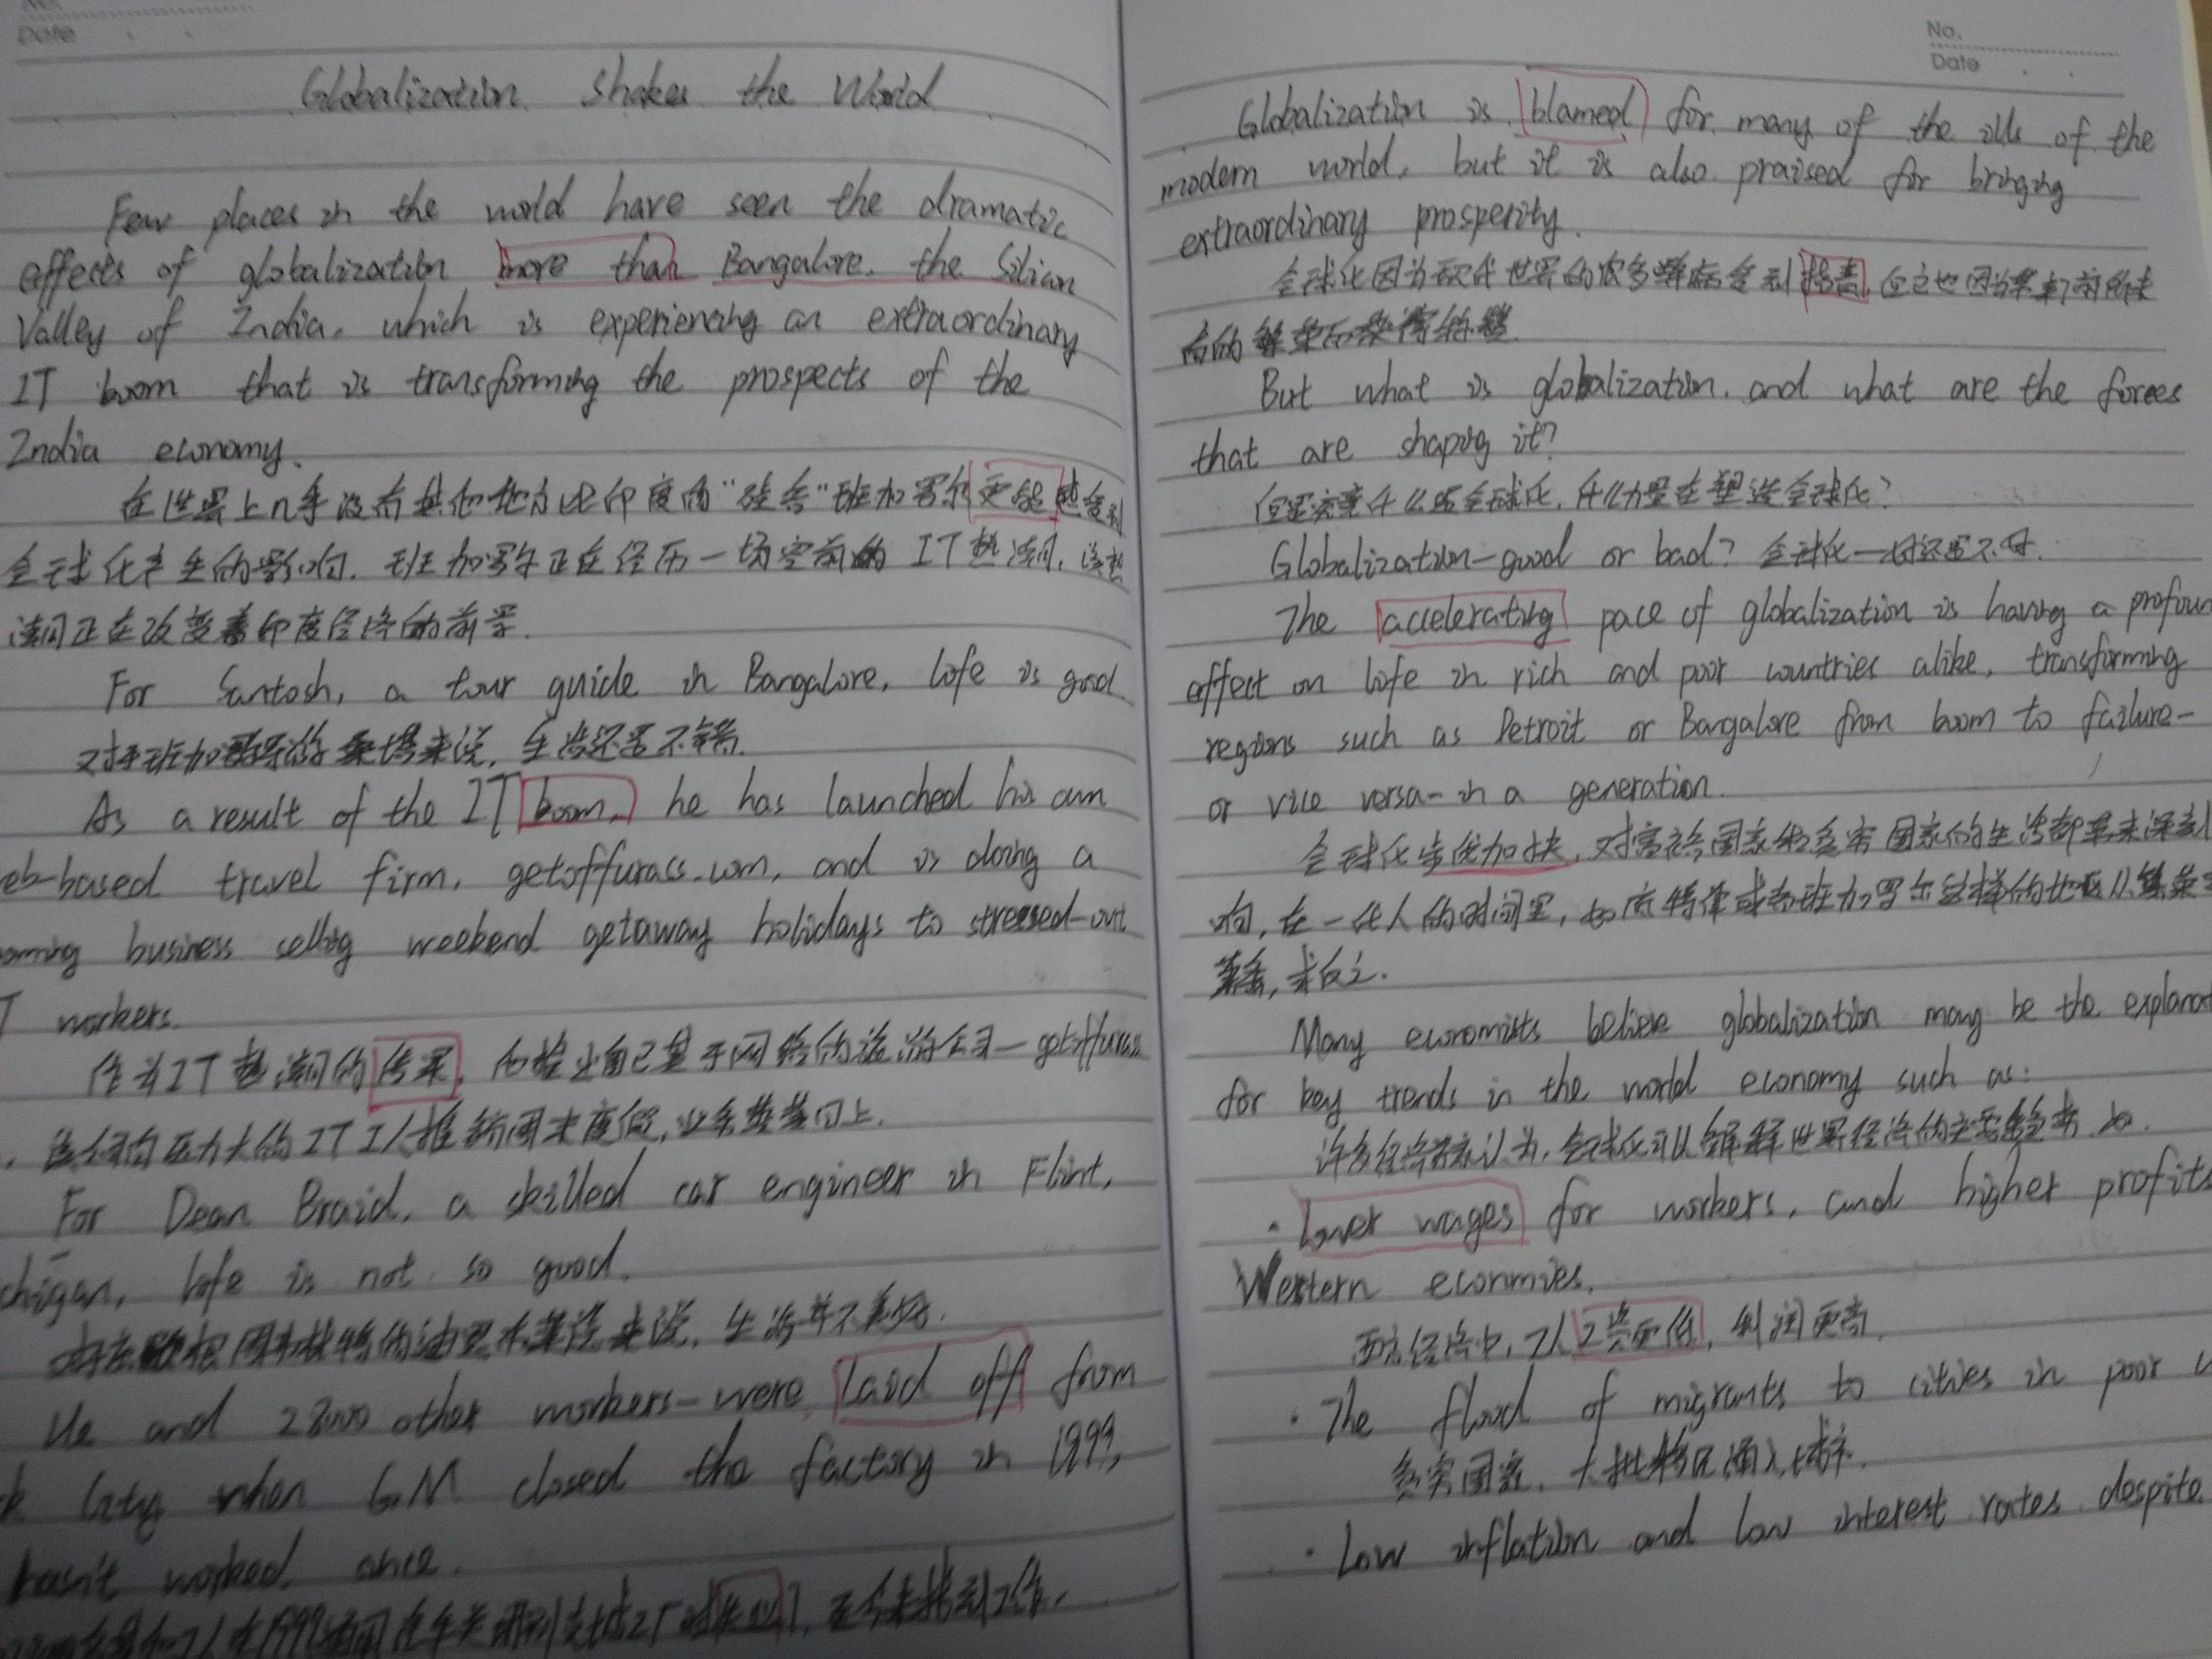 No.
Date
Globalization Shakes the World
Few places in the world have seen the dramatic
effects of globalization more than Bangalore. the Silicon
Valley of India. which is experiencing an extraordinary
IT boom that is transforming the prospects of the
India economy.
在世界上几乎没有其他地方比印度的“硅谷”班加罗尔更能感受到
全球化产生的影响. 班加罗尔正在经历一场空前的 IT热潮, 该热
潮正在改变着印度经济的前景.
For Santosh, a tour guide in Bangalore, life is good.
对于班加罗尔的来说, 生活还算不错.
As a result of the IT boom, he has launched his own
eb-based travel firm, getoffurass.com, and is doing a
oming business selling weekend getaway holidays to stressed-out
T workers.
作为IT热潮的结果, 他推出自己基于网络的旅游公司—getoffurass
. 该公司向压力大的IT工人推销周末度假, 业务蒸蒸日上.
For Dean Braid, a skilled car engineer in Flint,
chigan, life is not so good.
来说, 生活并不美妙.
He and 28000 other workers-were laid off from
k City when GM closed the factory in 1999,
hasn't worked since.
, 至今未找到工作.
No.
Date
Globalization is blamed for many of the ills of the
modern world, but it is also praised for bringing
extraordinary prosperity.
全球化因为现代世界的很多弊病受到指责, 但它也因为带来前所未
有的繁荣而获得称赞.
But what is globalization. and what are the forces
that are shaping it?
但是究竟什么是全球化, 什么力量在塑造全球化?
Globalization-good or bad? 全球化—好还是不好.
The accelerating pace of globalization is having a profoun
effect on life in rich and poor countries alike, transforming
regions such as Detroit or Bangalore from boom to failure-
or vice versa-in a generation.
全球化步伐加快, 对富裕国家和贫穷国家的生活都带来深刻
响, 在一代人的时间里, 如底特律或者班加罗尔这样的地区从繁荣
萧条, 或反之.
Many economists believe globalization may be the explanat
for key trends in the world economy such as:
许多经济学家认为, 全球化可以解释世界经济的主要趋势 如.
· Lower wages for workers, and higher profits
Western econmies.
西方经济中, 工人工资更低, 利润更高.
· The flood of migrants to cities in poor
贫穷国家, 大批移民涌入城市.
· Low inflation and low interest rates despite